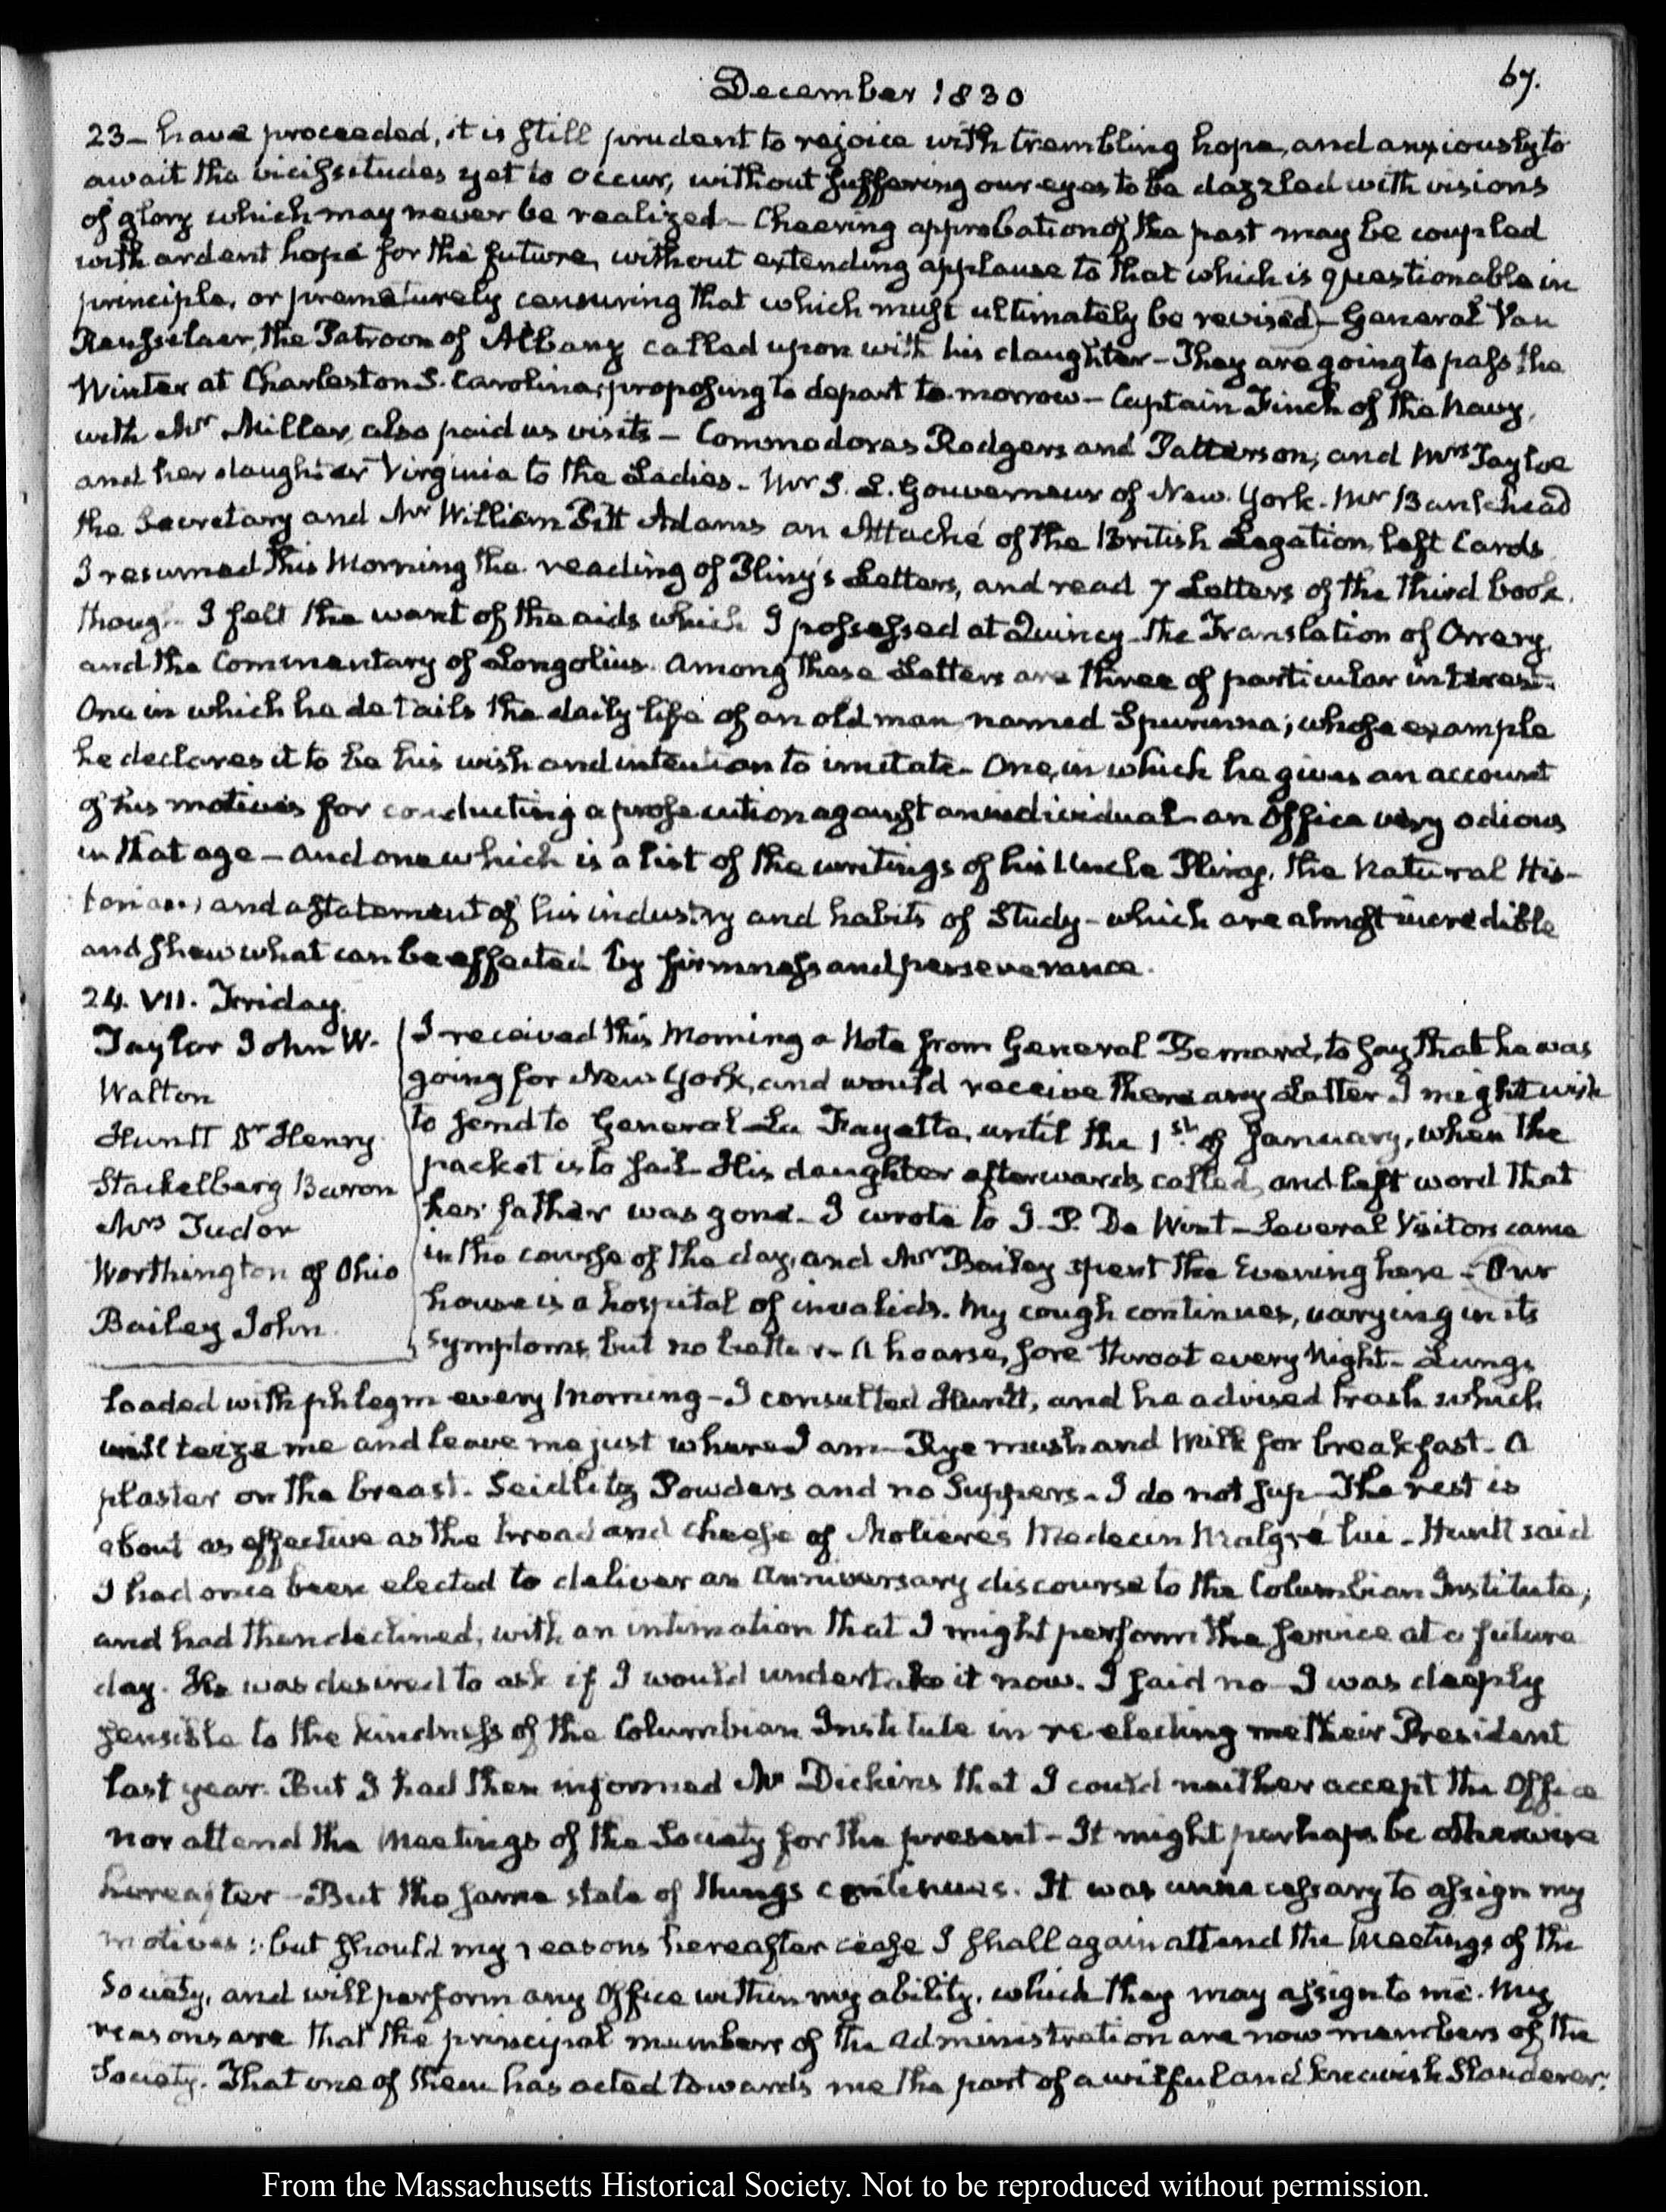 December 1830
67.
23 – have proceeded, it is still prudent to rejoice with trembling hope, and anxiously to
await the vicissitudes yet to occur, without suffering our eyes to be dazzled with visions
of glory which may never be realized – Cheering approbation of the past may be coupled
with ardent hope for the future, without extending applause to that which is questionable in
principle, or prematurely censuring that which must ultimately be revised – General Van
Rensselaer, the Patroon of Albany called upon with his daughter – They are going to pass the
Winter at Charleston S. Carolina, proposing to depart to-morrow – Captain Finch of the Navy,
with Mr Miller, also paid us visits – Commodores Rodgers and Patterson, and Mrs Tayloe
and her daughter Virginia to the Ladies. Mr S. L. Gouverneur of New-York. Mr Bankhead
the Secretary and Mr William Pitt Adams an Attaché of the British Legation, left Cards.
I resumed this Morning the reading of Pliny's Letters, and read 7 Letters of the third book.
though I felt the want of the aids which I possessed at Quincy – the Translation of Orrery,
and the Commentary of Longolius. Among these Letters are three of particular interest.
One in which he details the daily life of an old man named Spurinna; whose example
he declares it to be his wish and intention to imitate – One, in which he gives an account
of his motives for conducting a prosecution against an individual – an Office very odious
in that age – and one which is a list of the writings of his Uncle Pliny, the Natural His-
torian, and a statement of his industry and habits of Study – which are almost incredible
and shew what can be effected by firmness and perseverance.
24. VII. Friday.
Taylor John W.
Walton
Huntt Dr Henry.
Stackelberg Baron
Mrs Tudor
Worthington of Ohio
Bailey John.
I received this Morning a Note from General Bernard, to say that he was
going for New-York, and would receive there any Letter I might wish
to send to General La Fayette, until the 1st of January, when the
packet is to sail – His daughter afterwards called, and left word that
her father was gone – I wrote to J. P. De Wint – Several Visitors came
in the course of the day, and Mr Bailey spent the Evening here – Our
house is a hospital of invalids. My cough continues, varying in its
symptoms, but no better – A hoarse, sore throat every Night – Lungs
loaded with phlegm every Morning – I consulted Huntt, and he advised trash which
will teize me and leave me just where I am – Rye mush and Milk for breakfast – A
plaster on the breast – Seidlitz Powders and no Suppers – I do not sup – The rest is
about as effective as the bread and cheese of Molieres Medecin Malgré lui – Huntt said
I had once been elected to deliver an Anniversary discourse to the Columbian Institute;
and had then declined, with an intimation that I might perform the service at a future
day. He was desired to ask if I would undertake it now. I said no – I was deeply
sensible to the kindness of the Columbian Institute in re-electing me their President
last year. But I had then informed Mr Dickins that I could neither accept the Office
nor attend the Meetings of the Society for the present – It might perhaps be otherwise
hereafter – But the same state of things continues. It was unnecessary to assign my
motives: but should my reasons hereafter cease I shall again attend the Meetings of the
Society, and will perform any Office within my ability, which they may assign to me. My
reasons are that the principal members of the Administration are now members of the
Society. That one of them has acted towards me the part of a wilful and knavish Slanderer.
From the Massachusetts Historical Society. Not to be reproduced without permission.